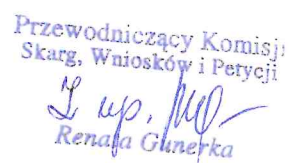 Przewodniczący Komisji
Skarg, Wniosków i Petycji
Z up.
Renata Gunerka